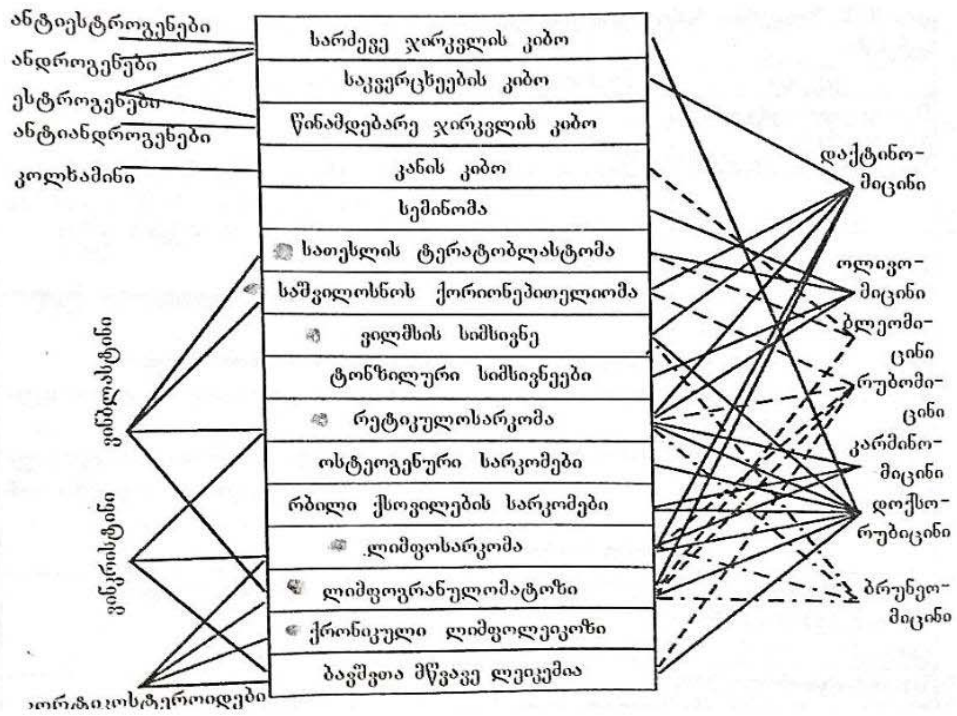 ანტიესტროგენები
ანდროგენები
ესტროგენები
ანტიანდროგენები
კოლხამინი
ვინბლასტინი
ვინკრისტინი
კორტიკოსტეროიდები
სარძევე ჯირკვლის კიბო
საკვერცხეების კიბო
წინამდებარე ჯირკვლის კიბო
კანის კიბო
სემინომა
სათესლის ტერატობლასტომა
საშვილოსნოს ქორიონეპითელიომა
ვილმსის სიმსივნე
ტონზილური სიმსივნეები
რეტიკულოსარკომა
ოსტეოგენური სარკომები
რბილი ქსოვილების სარკომები
ლიმფოსარკომა
ლიმფოგრანულომატოზი
ქრონიკული ლიმფოლეიკოზი
ბავშვთა მწვავე ლეიკემია
დაქტინო-
მიცინი
ოლივო-
მიცინი
ბლეომი-
ცინი
რუბომი-
ცინი
კარმინო-
მიცინი
დოქსო-
რუბიცინი
ბრუნეო-
მიცინი